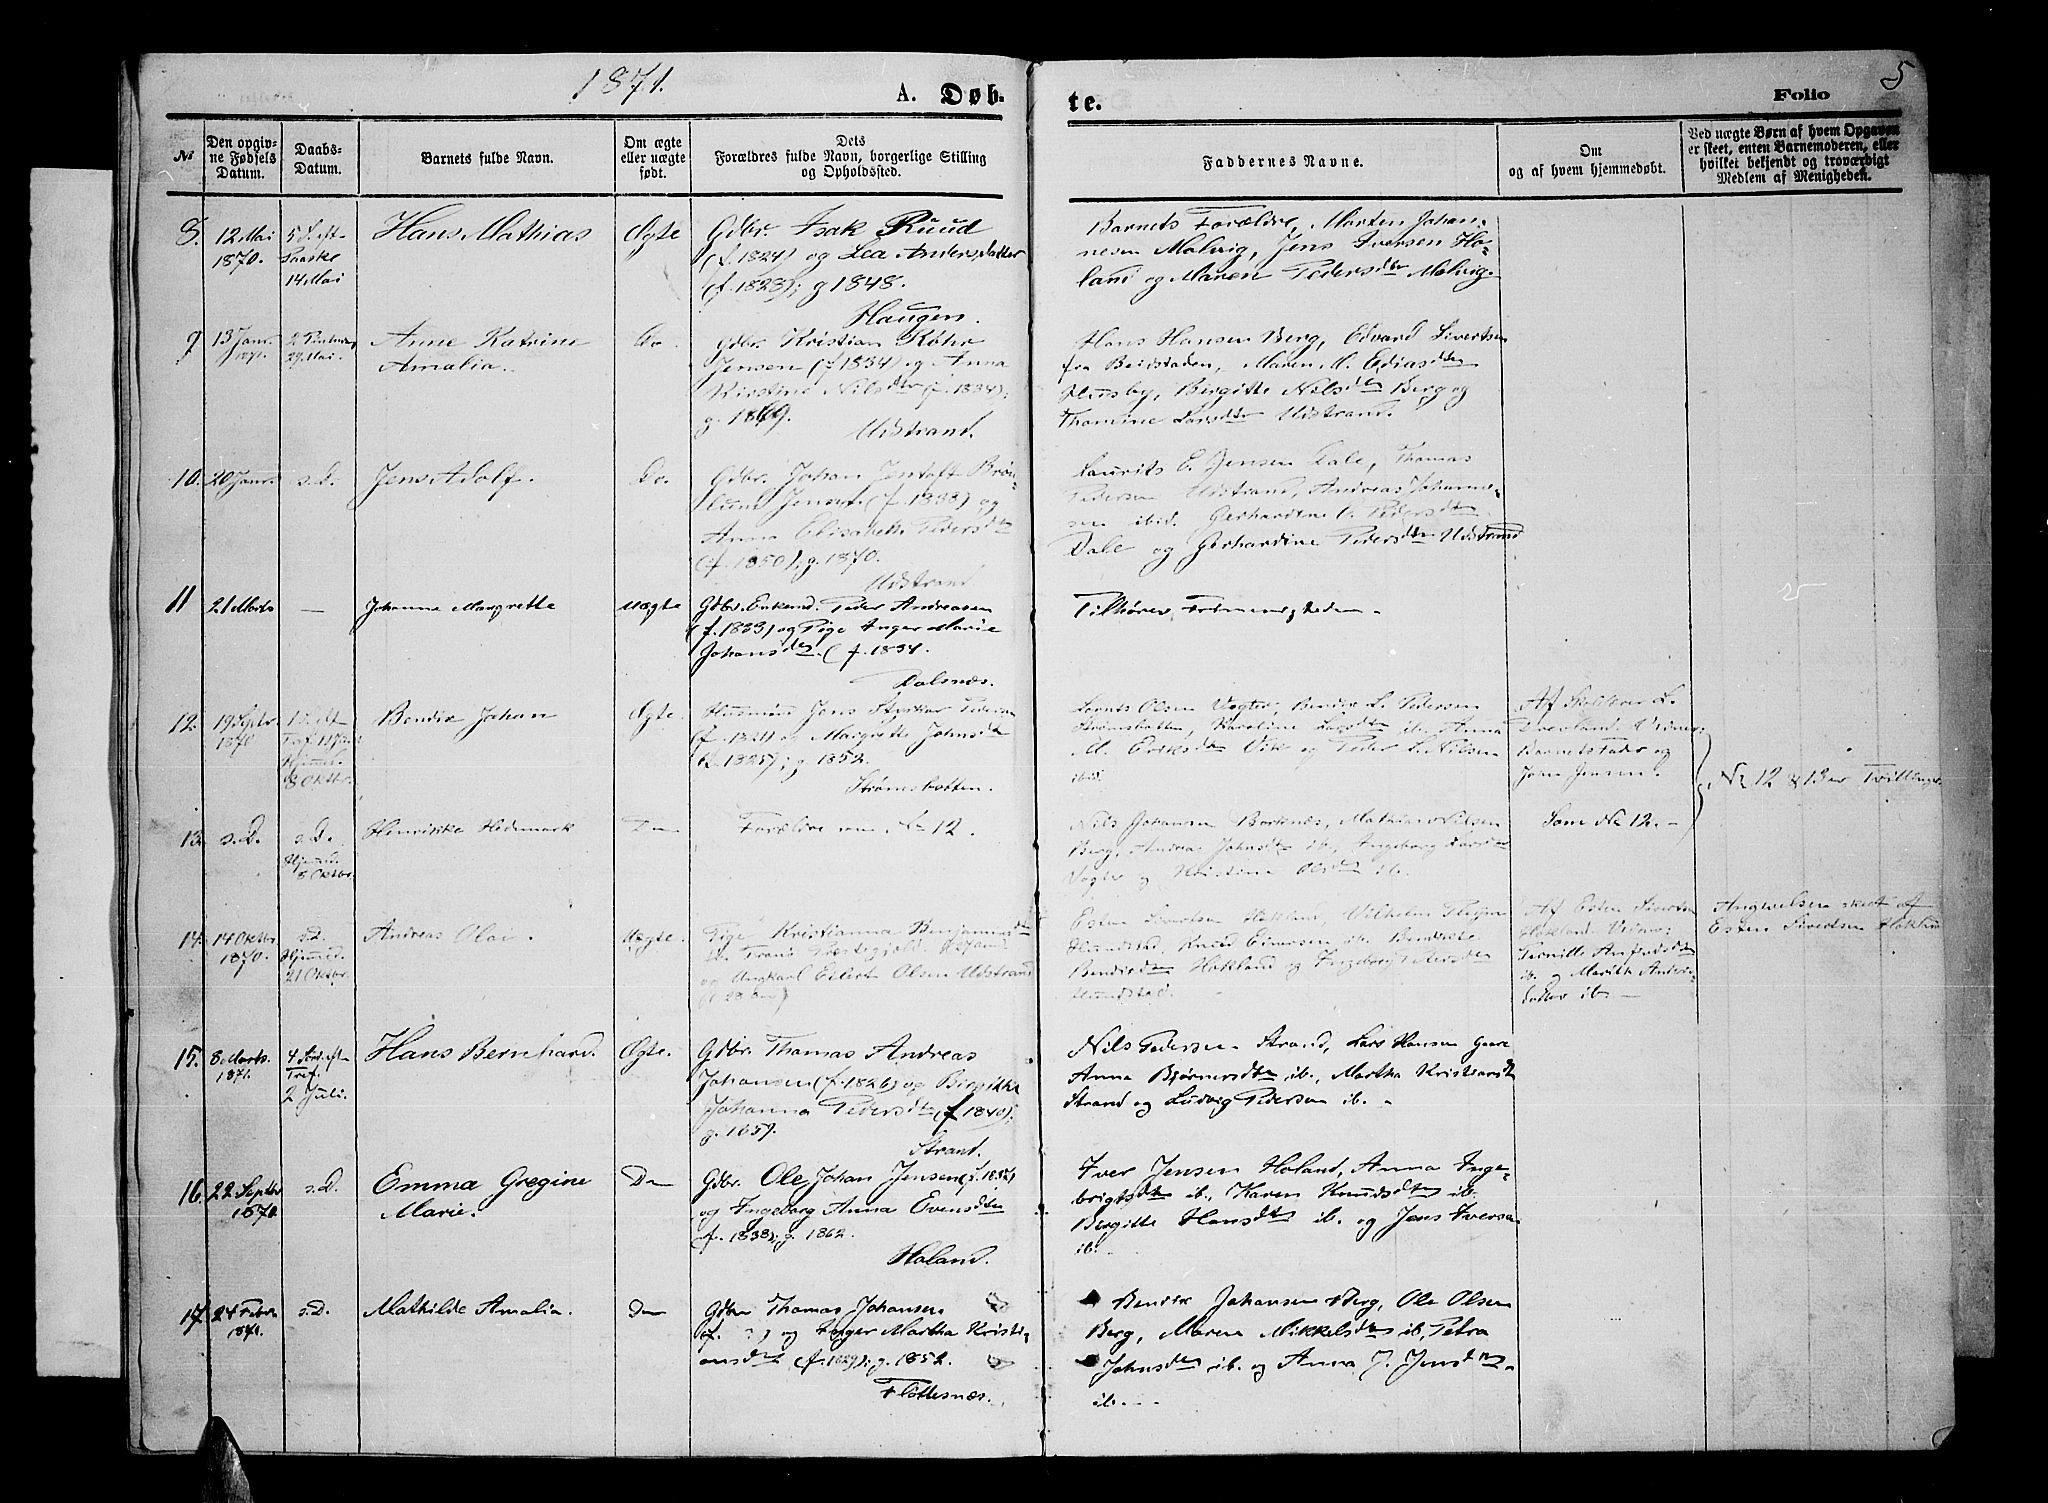 1871.
A. Døb-
te.
Folio
5
№
Den opgiv-
ne Fødsels
Datum.
Daabs-
Datum.
Barnets fulde Navn.
Om ægte
eller uægte
født.
Dets
Forældres fulde Navn, borgerlige Stilling
og Opholdssted.
Faddernes Navne.
Om
og af hvem hjemmedøbt.
Ved uægte Børn af hvem Opgaven
er skeet, enten Barnemoderen, eller
hvilket bekjendt og troværdigt
Medlem af Menigheden.
8.
12 Mai
1870.
5 S. eft
Paaske
14 Mai
Hans Mathias
Ægte
Gdbr. Isak Ruud
(f. 1824) og Lea Andersdatter
(f. 1823); g 1848.
Haugen.
Barnets Forældre, Morten Johan-
nesen Malvig, Jens Iversen Ho-
land og Maren Pedersdtr Malvig.
9
13 Janr.
1871.
29 Mai.
Anne Katrine
Amalia.
Do
Gdbr. Kristian Røhr
Jensen (f. 1834) og Anna
Kirstine Nilsdtr (f. 1834);
g. 1869.
Udstrand.
Hans Hansen Berg, Edvard Sivertsen
fra Beidstaden, Maren M. Ediasdtr
Husby, Birgitte Nilsdtr Berg og
Thomine Larsdtr Udstrand.
10.
20 Janr.
s.D.
Jens Adolf.
Do.
Gdbr. Johan Jentoft Brøn-
lund Jensen (f. 1838) og
Anna Elisabeth Pedersdtr
(f. 1850); g. 1870.
Udstrand
Laurits E. Jensen Dale, Thomas
Pedersen Udstrand, Andreas Johanne-
sen ibid. Gerhardine Pedersdtr
Dale og Gerhardine Pedersdtr Udstrand
11
21 Marts
—
Johanna Margrette
Uægte
Gdbr. Enkemd. Peder Andreasen
(f. 1833) og Pige Inger Marie
Johansdtr. (f. 1834.
Dalsnæs.
Tilhører Frimenigheden.
12.
19 Septbr
1870
1 S. eft
Tref.
Hjemmed.
8 Oktbr.
Bendix Johan
Ægte.
Husmand Jens Styrkar Pedersen
(f. 1821) og Margrette Johnsdtr
(f. 1825); g. 1852.
Strømsbotten.
Lornts Olsen Vogter, Bendix L. Pedersen
Strømsbotten, Karoline Larsdtr ib. Anna
M. Eriksdtr Vik og Peder L. Nilsen
ibid.
Af Skoleholder L.
Drevland. Vidner:
Barnets Fader og
John Jensen.
No 12 & 13 er Tvillinger.
13.
s.D.
s.D.
Hjemmed.
8 Oktbr.
Henrikke Hedemark
Do
Forældre som No 12.
Nils Johansen Borknæs, Mathias Nilsen
Berg, Andrea Johnsdtr ib., Ingeborg Larsdtr
Vogter og Kristine Olsdtr ib.
Som No 12.
14.
14 Oktbr.
1870.
s.D.
Hjemmed.
21 Oktbr.
Andreas Olai.
Uægte.
Pige Kristianna Benjaminsdtr
og Ungkarl Eilert Olsen Udstrand
(f. 28 Aar)
Esten Sivertsen Hokland, Vilhelm
Hundstad, Knud Einersen ib. Bendikte
Bendixdtr Hokland og Ingeborg Pedersdtr
Hundstad.
Af Esten Sivertsen
Hokland. Vidner:
Pernille Arnfindsdtr
ib. og Marith Anders-
datter ib.
Angivelsen skedt af
Esten Sivertsen Hokland
15.
8 Marts.
1871.
4 Snd. eft
Tref.
2 Juli.
Hans Bernhard.
Ægte.
Gdbr. Thomas Andreas
Johansen (f. 1826) og Birgitte
Johanna Pedersdtr (f 1840);
g. 1857.
Strand.
Nils Pedersen Strand, Lars Hansen Gaare
Anna Bjørnersdtr ib., Martha Kristiansdtr
Strand og Ludvig Pedersen ib.
16.
22 Septbr
1870.
s.D.
Emma Gregine
Marie.
Do
Gdbr. Ole Johan Jensen (f. 1837)
og Ingeborg Anna Evensdtr
(f. 1838); g. 1862.
Holand.
Iver Jensen Holand, Anna Inge-
brigtsdtr ib., Karen Knudsdtr ib.
Bergitte Hansdtr ib. og Jens Iversen
ib.
17.
24 Febr.
1871.
s.D.
Mathilde Amalia.
Do
Gdbr Thomas Johansen
(f. ) og Inger Martha Kristi-
ansdtr (f. 1829); g. 1852.
Flottesnæs.
Bendix Johansen Berg, Ole Olsen
Berg, Maren Mikkelsdtr ib., Petra
Johnsdtr ib. og Anna J. Jensdtr
ib.